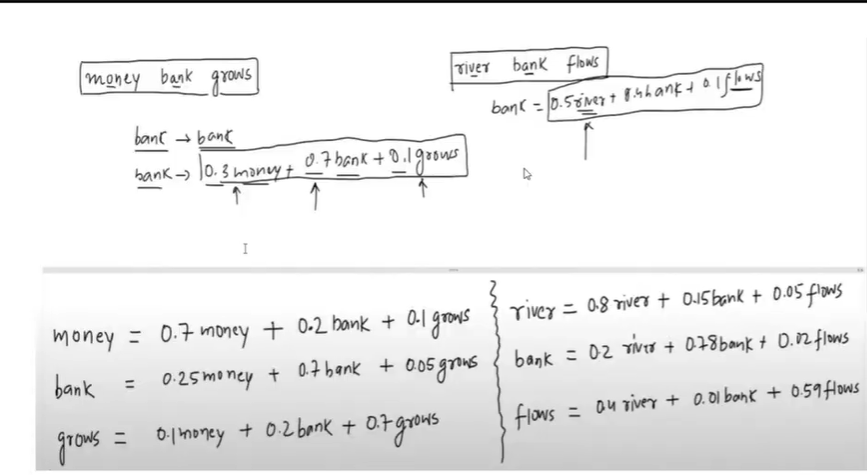 money bank grows
bank → bank
bank → 0.3 money + 0.7 bank + 0.1 grows
river bank flows
bank = 0.5 river + 0.4 bank + 0.1 flows
money = 0.7 money + 0.2 bank + 0.1 grows
bank = 0.25 money + 0.7 bank + 0.05 grows
grows = 0.1 money + 0.2 bank + 0.7 grows
river = 0.8 river + 0.15 bank + 0.05 flows
bank = 0.2 river + 0.78 bank + 0.02 flows
flows = 0.4 river + 0.01 bank + 0.59 flows